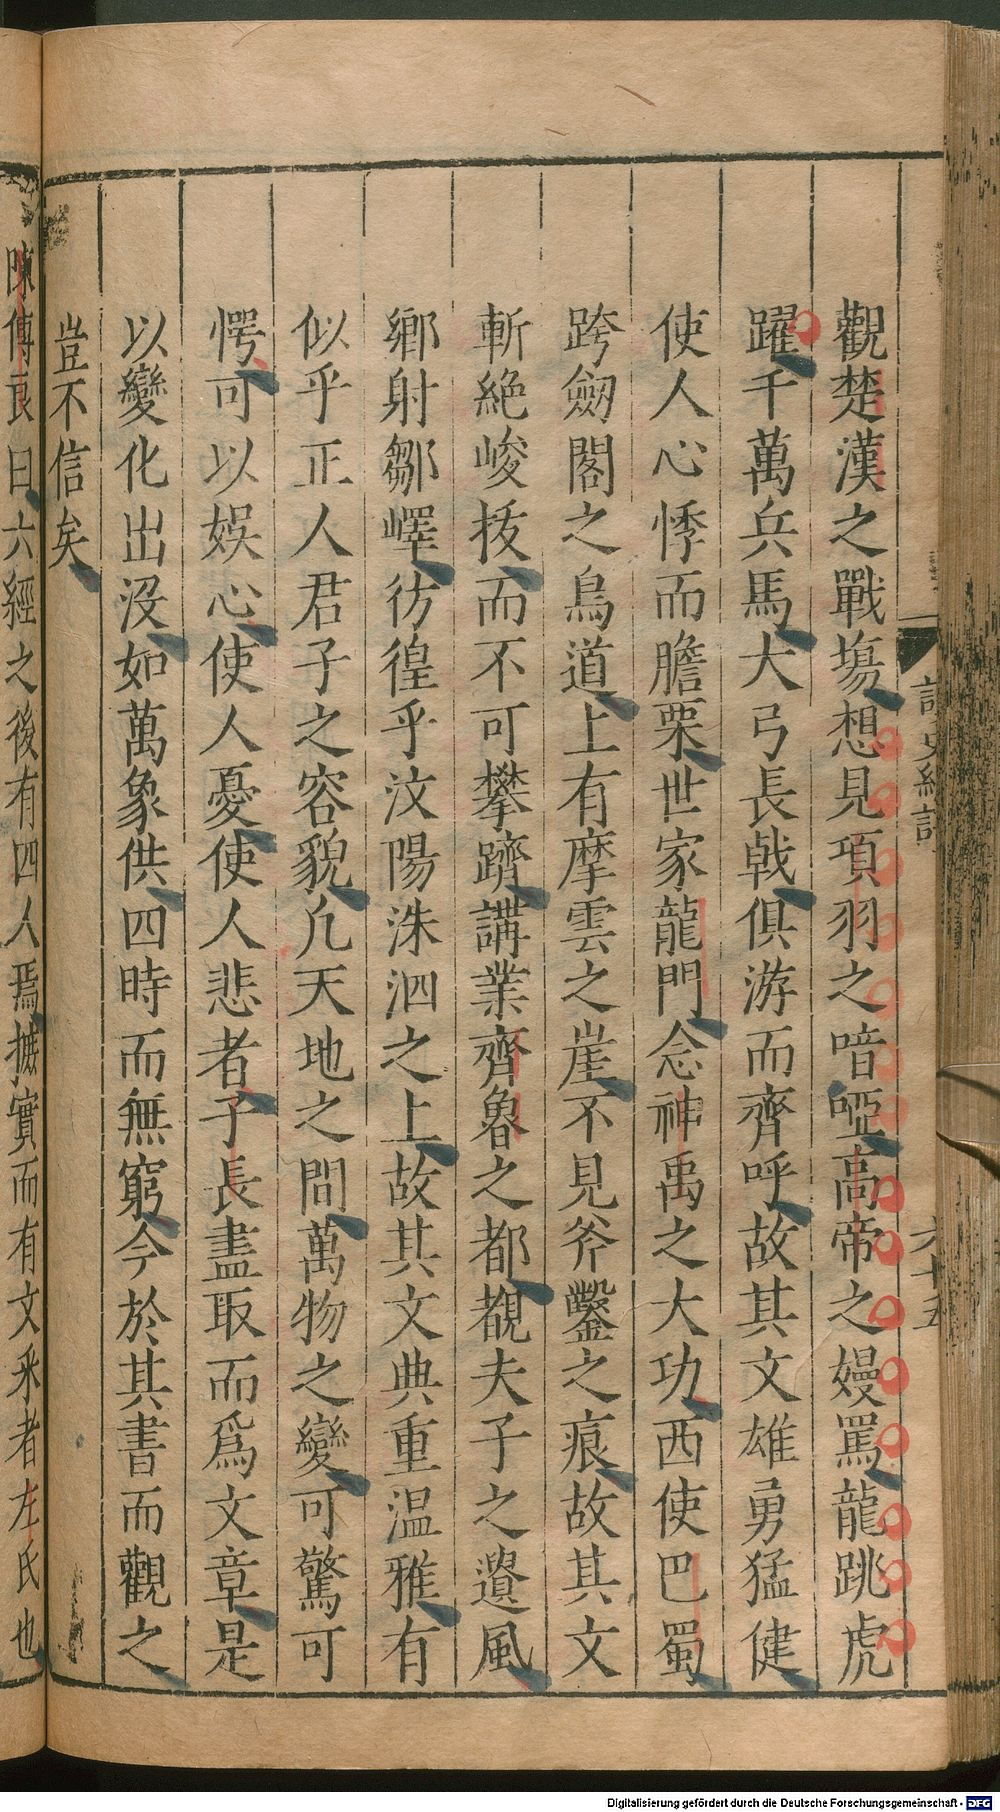 觀楚漢之戰塲想見項羽之喑啞高帝之嫚罵龍跳虎
躍千萬兵馬大弓長戟俱游而齊呼故其文雄勇猛健
使人心悸而膽栗世家龍門念神禹之大功西使巴蜀
跨劒閣之鳥道上有摩雲之崖不見斧鑿之痕故其文
斬絶峻拔而不可攀躋講業齊魯之都覩夫子之遺風
鄉射鄒嶧彷徨乎汶陽洙泗之上故其文典重温雅有
似乎正人君子之容貌凢天地之間萬物之變可驚可
愕可以娛心使人憂使人悲者子長盡取而爲文章是
以變化出没如萬象供四時而無窮今於其書而觀之
豈不信矣
陳傅良曰六經之後有四人焉摭實而有文采者左氏也
六十五
Digitalisierung gefördert durch die Deutsche Forschungsgemeinschaft - DFG